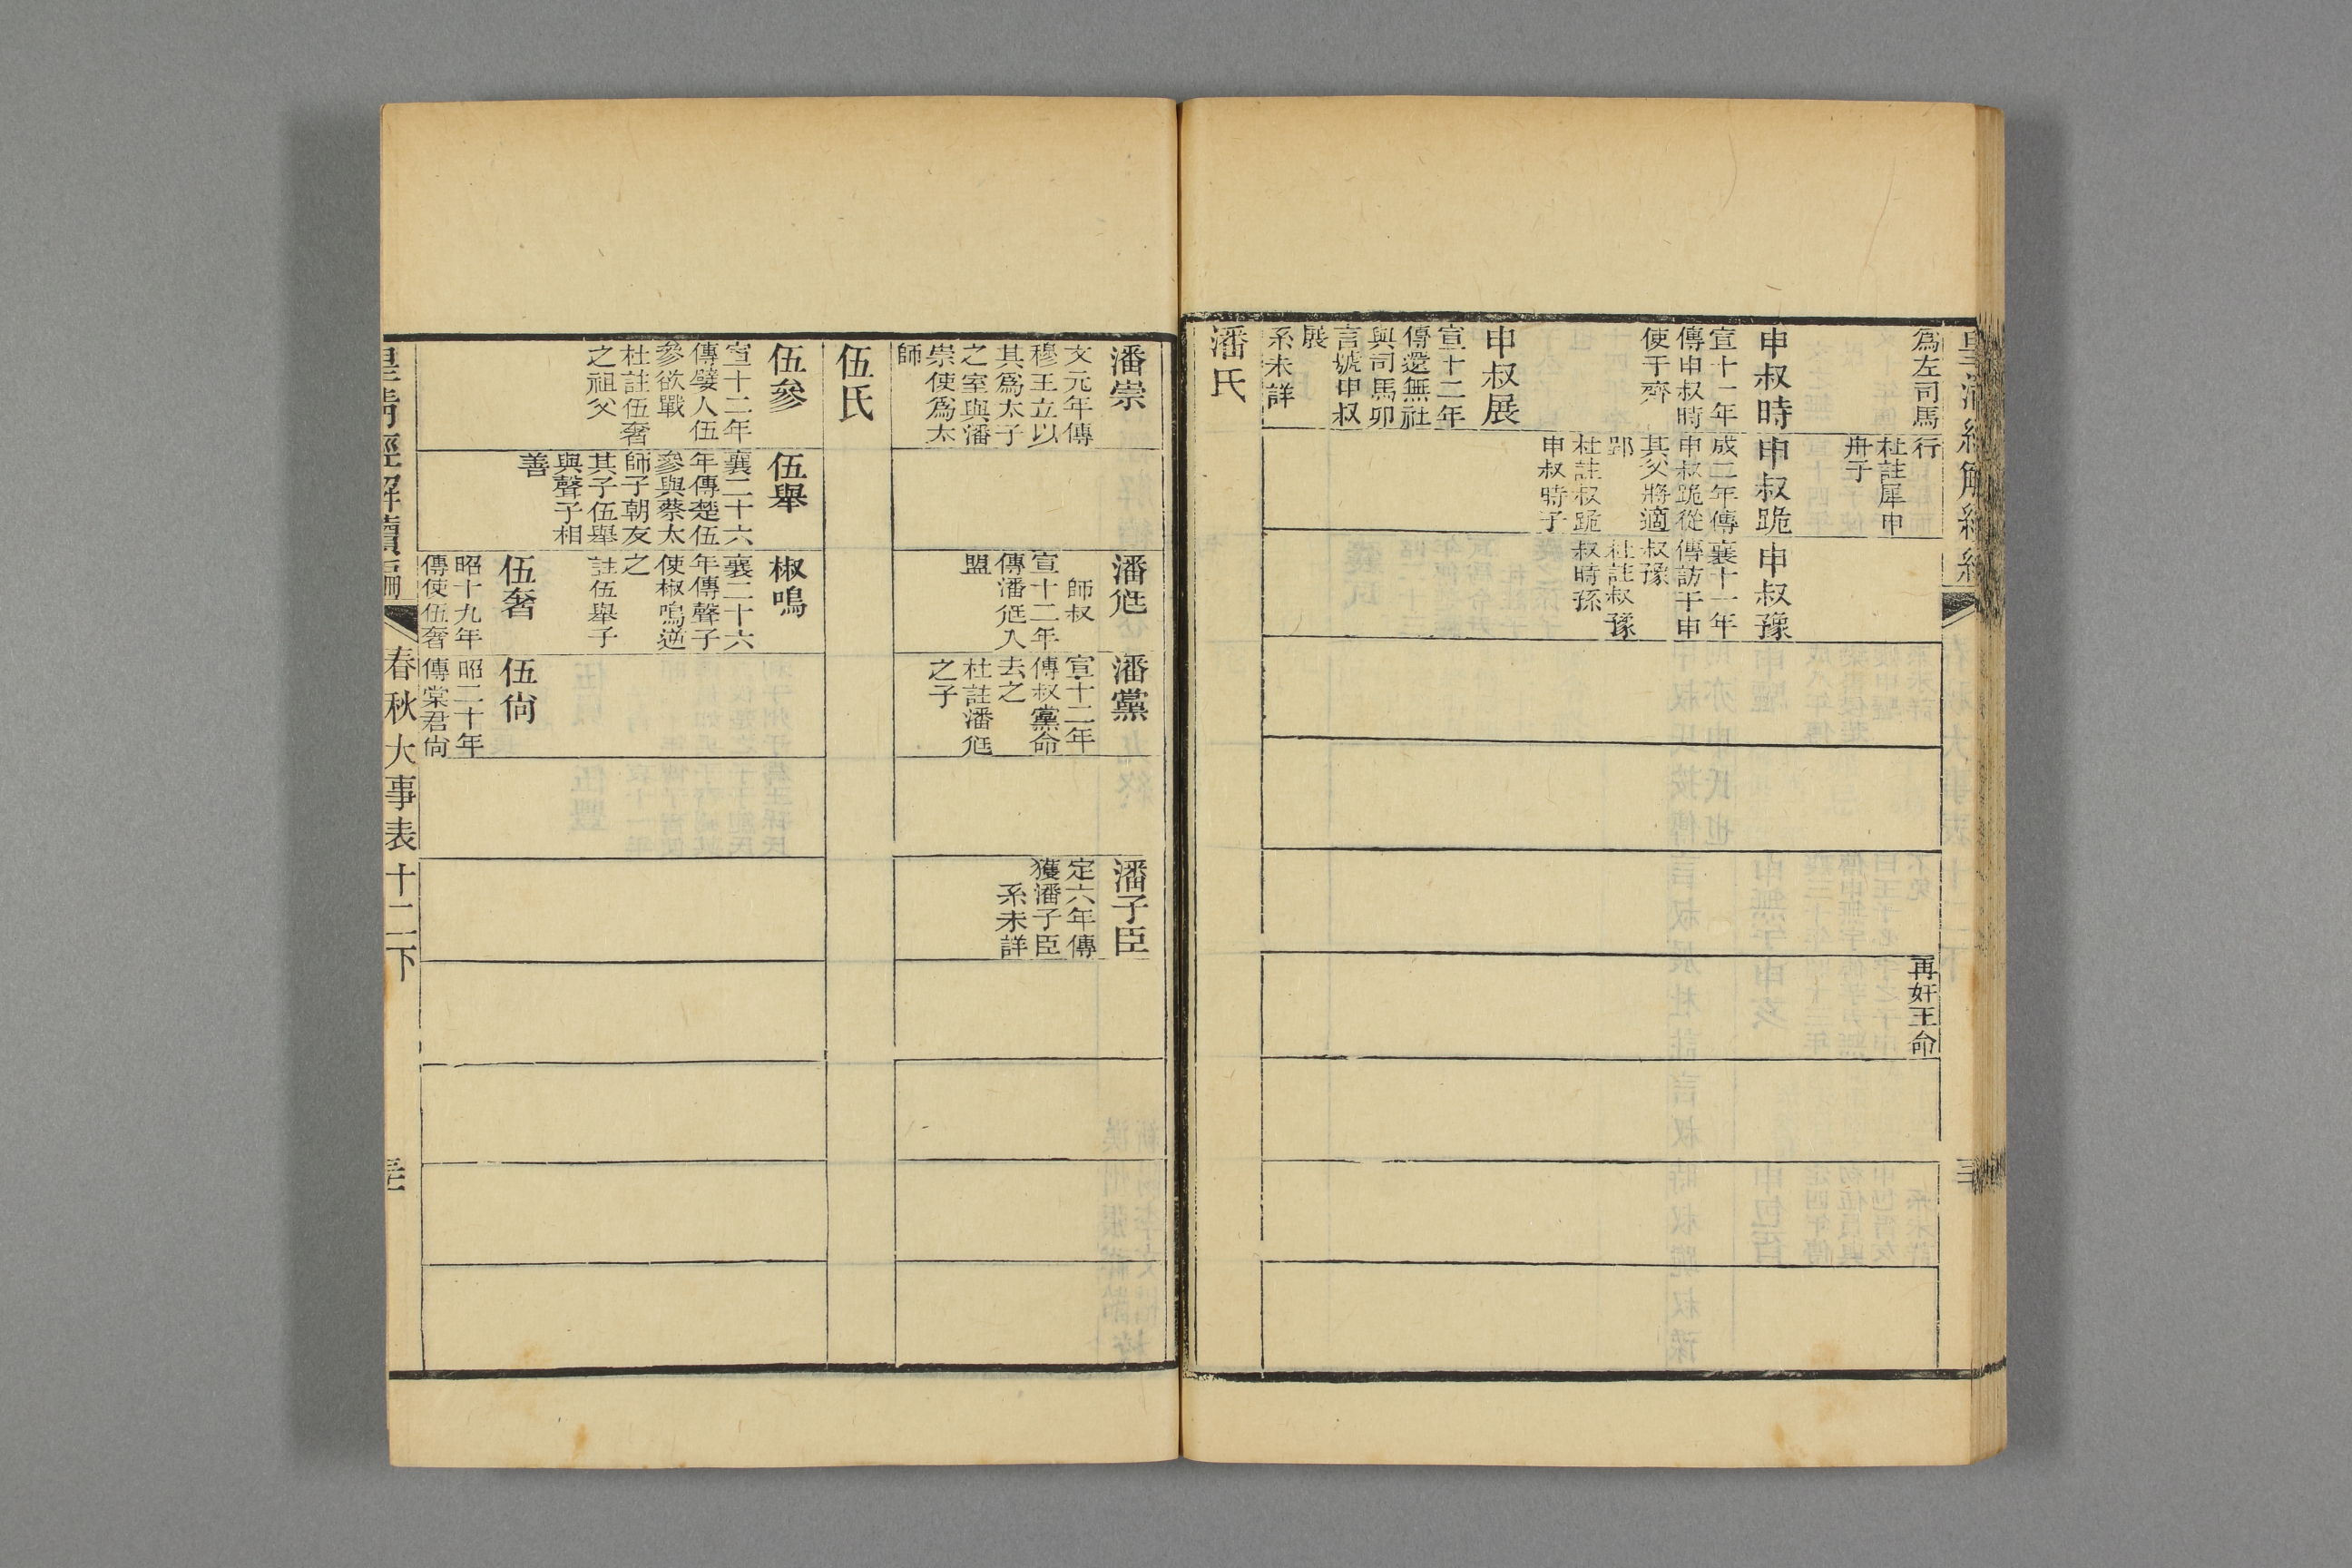 爲左司馬
行
杜註犀申
舟子
再奸王命
申叔時
宣十一年
傳申叔時
使于齊
申叔跪
成二年傳
申叔跪從
其父將適
郢
杜註叔跪
申叔時子
申叔豫
襄十一年
傳訪于申
叔豫
杜註叔豫
叔時孫
申叔展
宣十二年
傳還無社
與司馬卯
言號申叔
展
系未詳
潘氏
潘崇
文元年傳
穆王立以
其爲太子
之室與潘
崇使爲太
師
潘尪
師叔
宣十二年
傳潘尪入
盟
潘黨
宣十二年
傳叔黨命
去之
杜註潘尪
之子
潘子臣
定六年傳
獲潘子臣
系未詳
伍氏
伍參
宣十二年
傳嬖人伍
參欲戰
杜註伍奢
之祖父
伍舉
襄二十六
年傳楚伍
參與蔡太
師子朝友
其子伍舉
與聲子相
善
椒鳴
襄二十六
年傳聲子
使椒鳴逆
之
註伍舉子
伍奢
昭十九年
傳使伍奢
伍尙
昭二十年
傳棠君尙
皇清經解續編
春秋大事表十二下